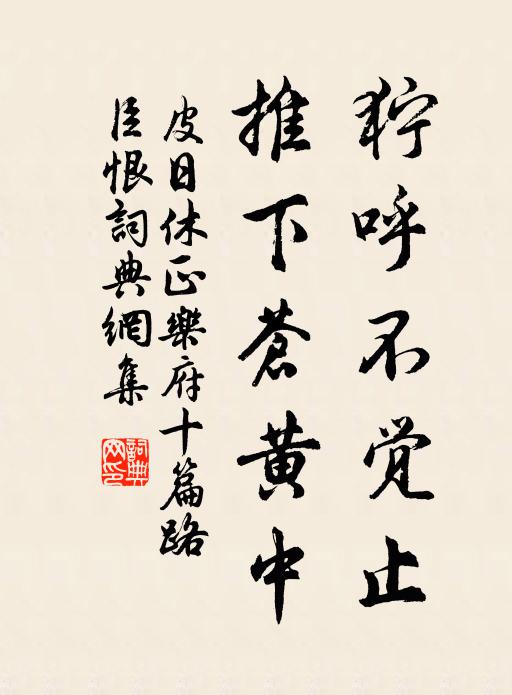 狞呼不觉止
推下苍黄中
皮日休正樂府十篇路
臣恨詞典網集
詞典網印